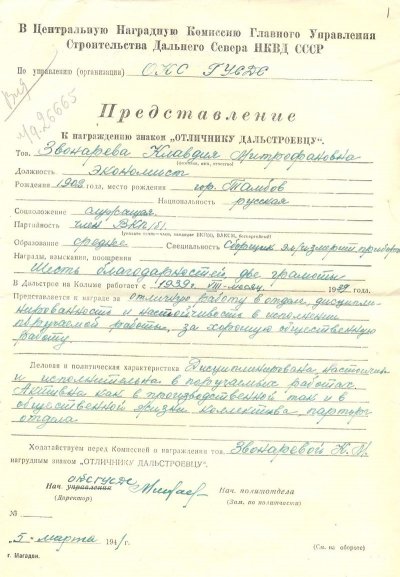 1
В Центральную Наградную Комиссию Главного Управления
Строительства Дальнего Севера НКВД СССР
По управлению (организации) ОКС ГУСДС
Представление
К награждению знаком „ОТЛИЧНИКУ ДАЛЬСТРОЕВЦУ".
Тов. Звонарева Клавдия Митрофановна
(фамилия, имя, отчество)
Должность экономист
Рождения 1902 года, место рождения гор. Тамбов
Национальность русская
Соцположение служащая
Партийность член ВКП/б/.
Образование среднее Специальность Сборщик эл/размерит. приборов
Награды, взыскания, поощрения
Шесть благодарностей, две грамоты
В Дальстрое на Колыме работает с 1939г. VIII месяц 1939 г.
Представляется к награде за отличную работу в отделе, дисципли-
нированность и настойчивость в исполнении
поручаемой работы, за хорошую общественную
работу.
Деловая и политическая характеристика Дисциплинирована, настойчива
и исполнительна в поручаемых работах.
Активна как в производственной так и в
общественной жизни коллектива, парторг
отдела
Ходатайствуем перед Комиссией о награждении тов. Звонаревой К.М.
нагрудным знаком „ОТЛИЧНИКУ ДАЛЬСТРОЕВЦУ".
Нач. управления
(Директор)
Нач. политотдела
(Зам. по политчасти)
№
5 марта 194 г.
г. Магадан.
(См. на обороте)